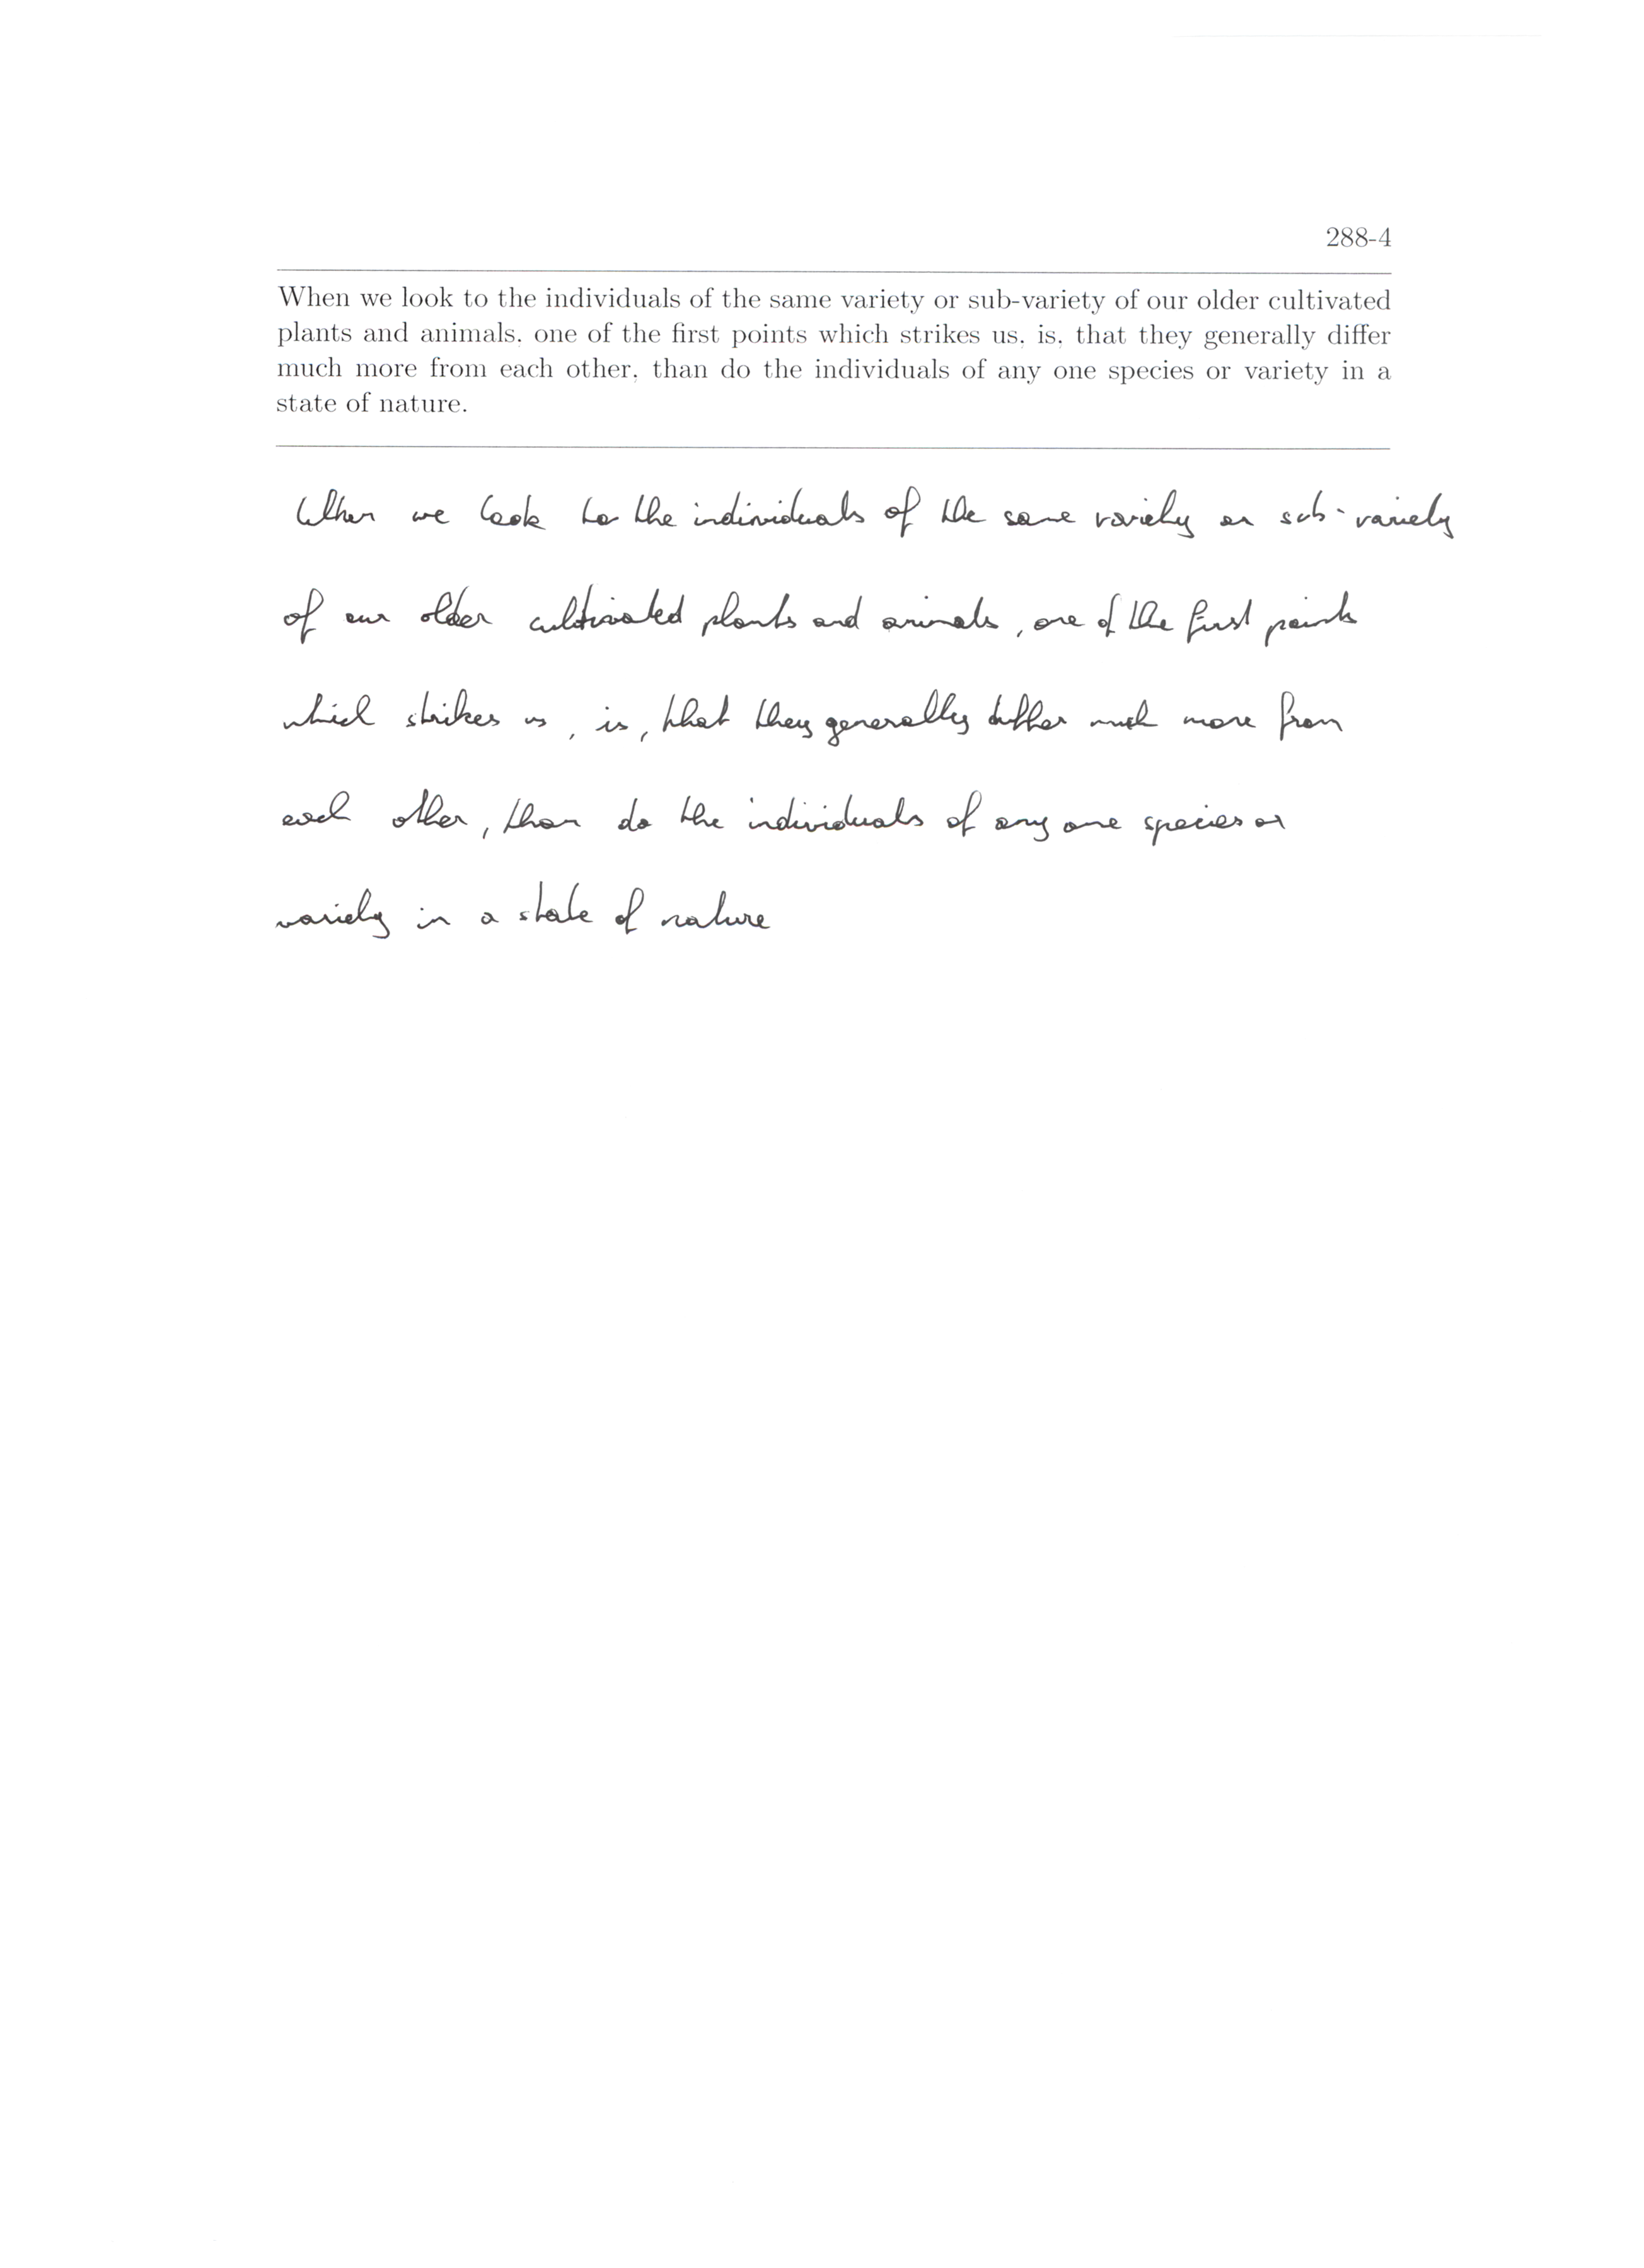 288-4
When we look to the individuals of the same variety or sub-variety of our older cultivated
plants and animals, one of the first points which strikes us, is, that they generally differ
much more from each other, than do the individuals of any one species or variety in a
state of nature.
When we look to the individuals of the same variety or sub-variety
of our older cultivated plants and animals, one of the first points
which strikes us, is, that they generally differ much more from
each other, than do the individuals of any one species or
variety in a state of nature